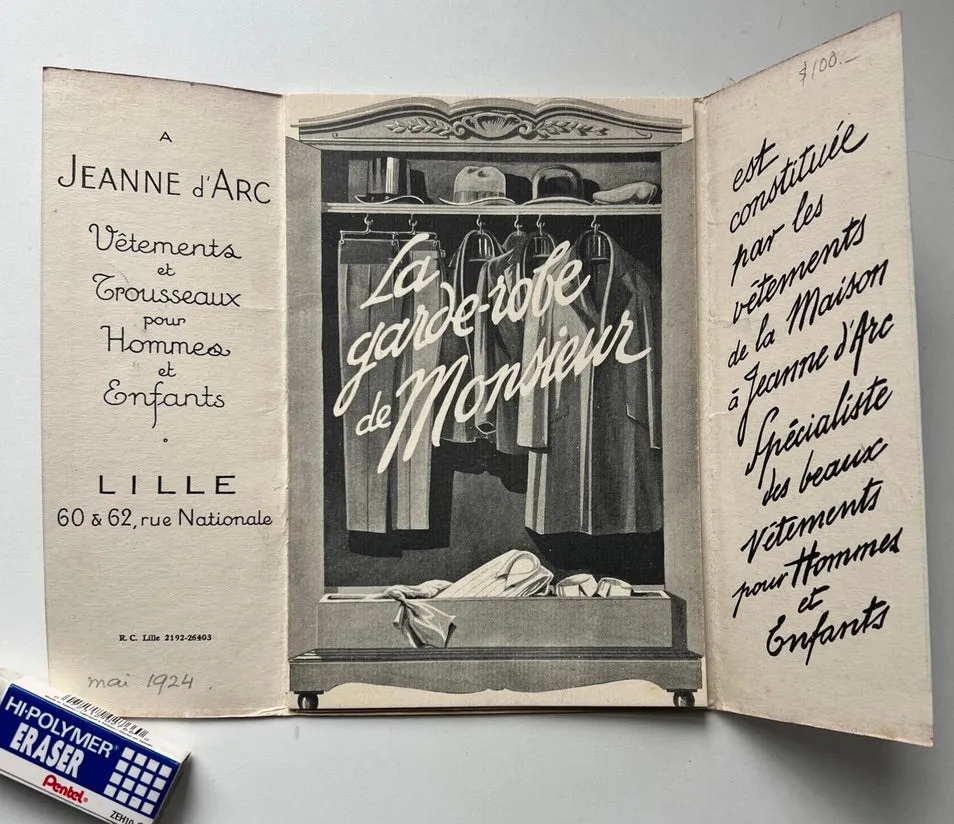 A
JEANNE d'ARC
Vêtements
et
Trousseaux
pour
Hommes
et
Enfants
LILLE
60 & 62, rue Nationale
R. C. Lille 2192-26403
mai 1924.
La
garde-robe
de Monsieur
$100.–
est
constituée
par les
vêtements
de la Maison
à Jeanne d'Arc
Spécialiste
des beaux
Vêtements
pour Hommes
et
Enfants
HI-POLYMER®
ERASER
Pentel®
ZEH10